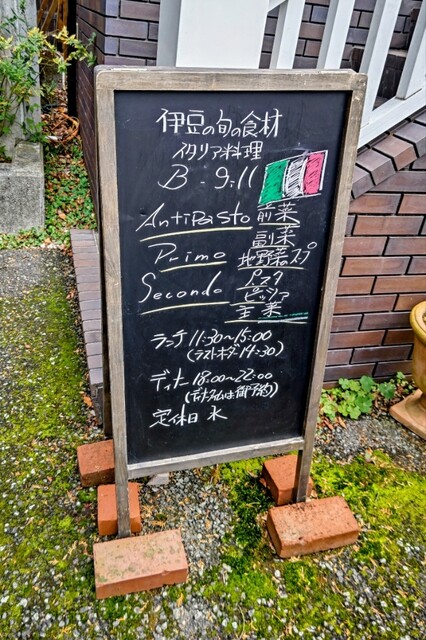 伊豆の旬の食材
イタリア料理
B - 9:11
Antipasto 前菜
副菜
Primo 地野菜のスープ
Secondo パスタ
ピッツァ
主菜
ランチ 11:30~15:00
(ラストオーダー14:30)
ディナー 18:00~22:00
(ディナータイムは御予約)
定休日 水